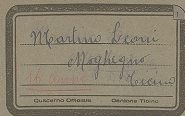 Martino Leoni
Moghegno
16 anni Ticino
Quaderno Ufficiale Cantone Ticino